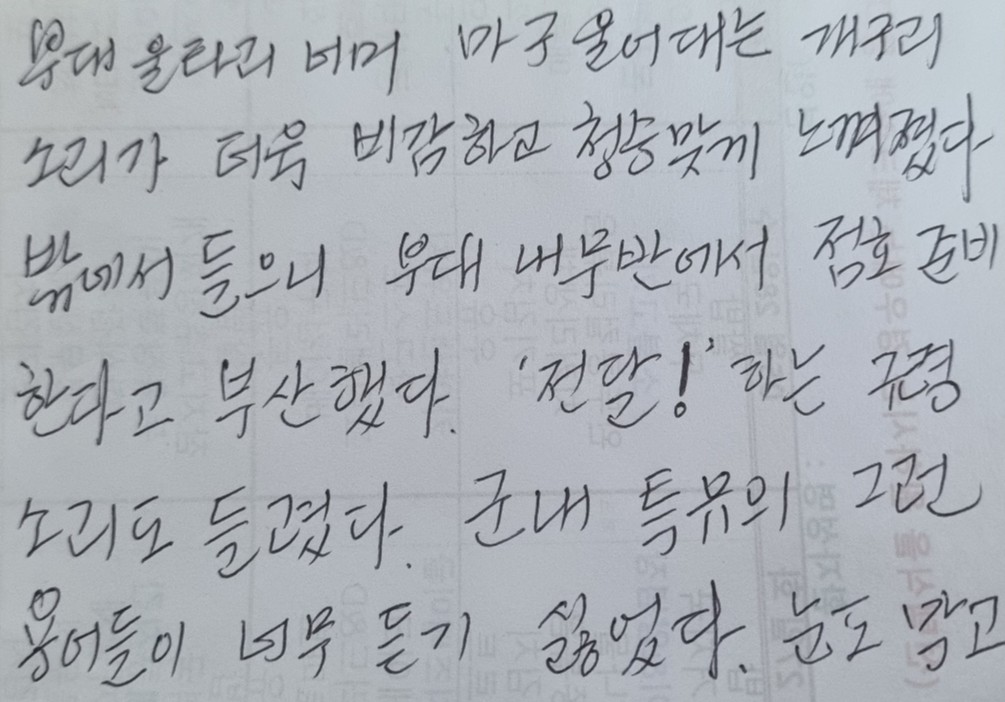 부대 울타리 너머 마구 울어대는 개구리
소리가 더욱 비감하고 청승맞게 느껴졌다
밖에서 들으니 부대 내무반에서 점호 준비
한다고 부산했다. '전달!' 하는 구령
소리도 들렸다. 군대 특유의 그런
용어들이 너무 듣기 싫었다. 눈도 막고